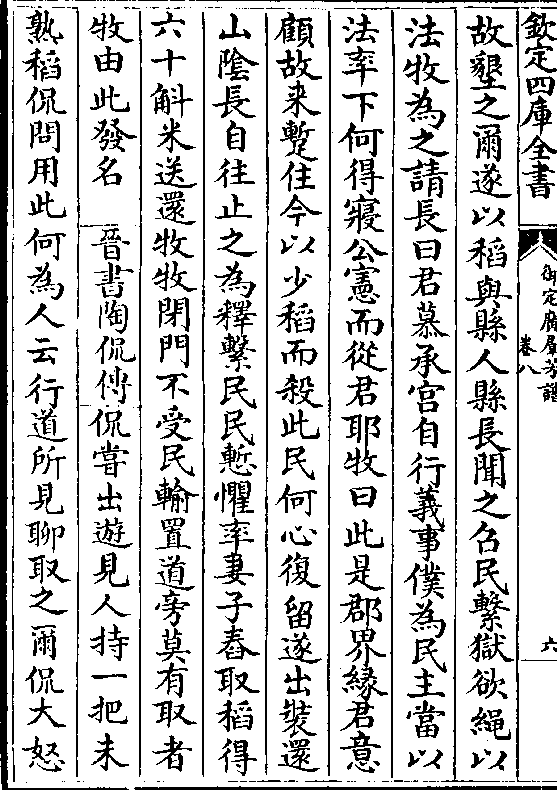 欽定四庫全書
御定廣羣芳譜
卷八
六
故墾之爾遂以稻與縣人縣長聞之召民繫獄欲繩以
法牧為之請長曰君慕承宫自行義事僕為民主當以
法率下何得寢公憲而從君耶牧曰此是郡界緣君意
顧故来蹔住今以少稻而殺此民何心復留遂出裝還
山隂長自往止之為釋繫民民慙懼率妻子舂取稻得
六十斛米送還牧牧閉門不受民輸置道旁莫有取者
牧由此發名　晉書陶侃傳侃嘗出遊見人持一把未
熟稻侃問用此何為人云行道所見聊取之爾侃大怒